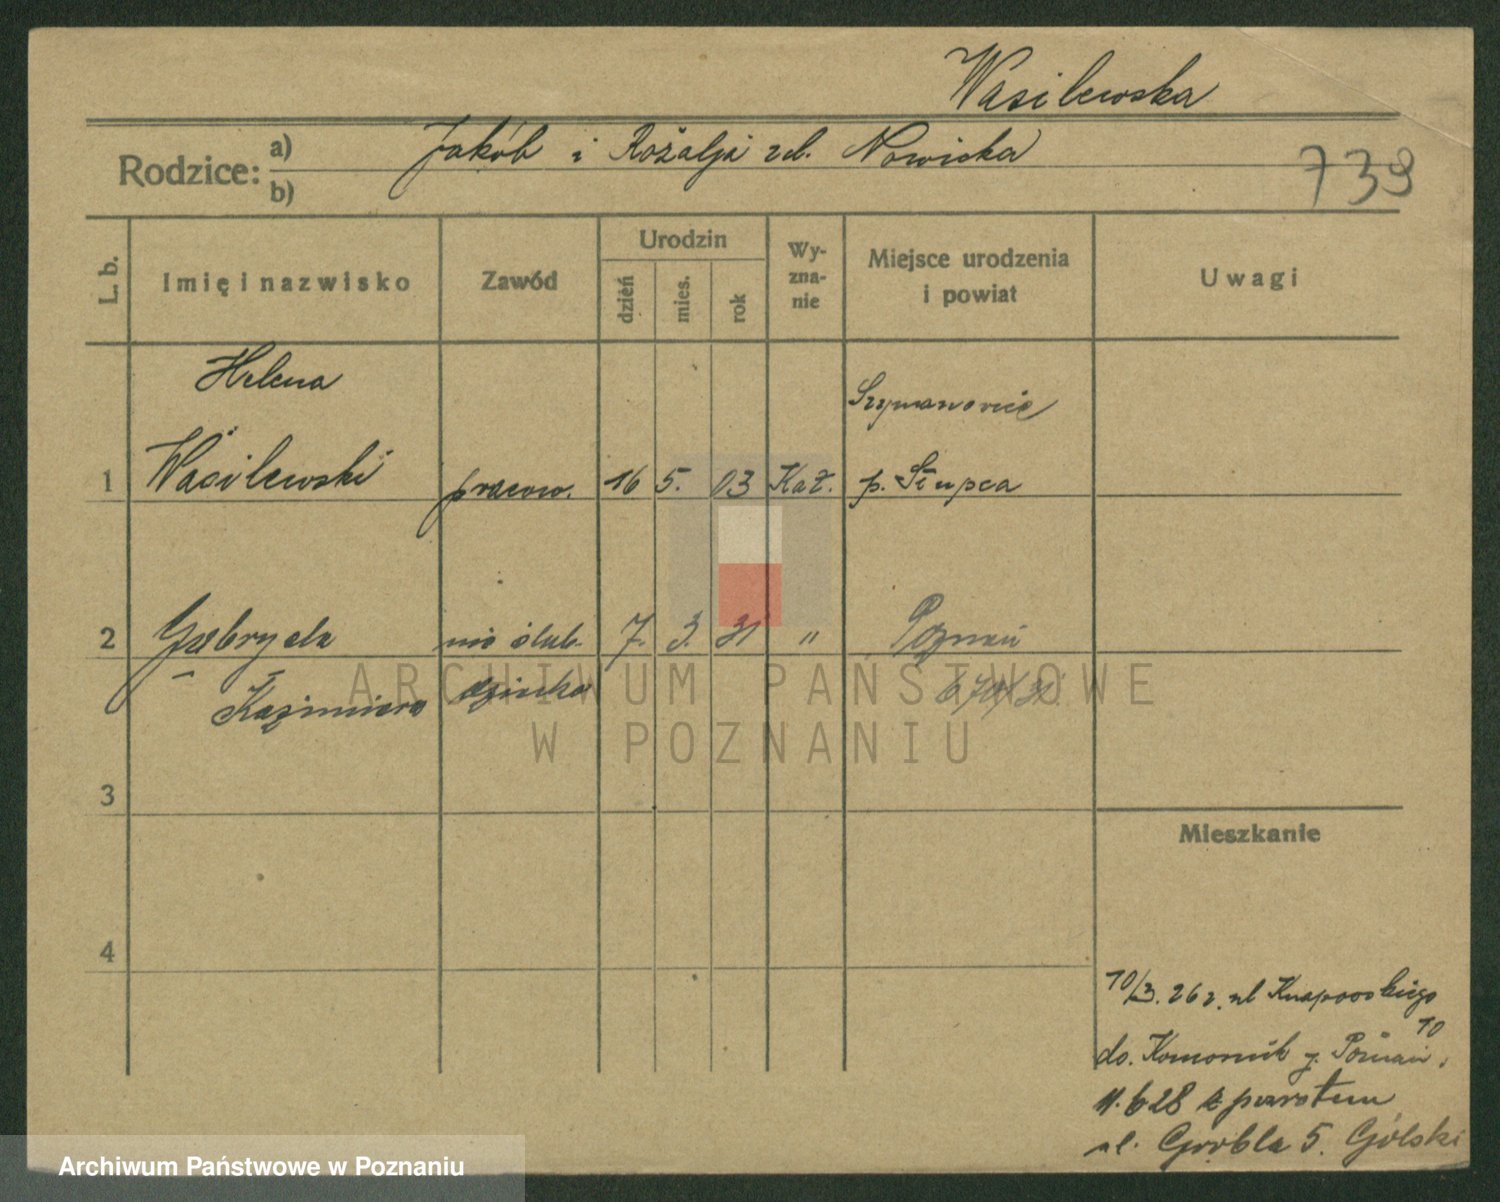 Wasilewska
Rodzice: a) Jakób i Rozalja zd. Nowicka
b)
739
L. b. Imię i nazwisko Zawód Urodzin dzień mies. rok Wyznanie Miejsce urodzenia i powiat Uwagi
Helena Szymanowice
1 Wasilewski pracow. 16 5. 03 Kat. p. Słupca
2 Gabryela nie ślub. 7. 3. 31 " Poznań
Kazimiera dziecko
3
Mieszkanie
4
10/3. 26 z. ul Knapowskiego 10
do. Komornik p. Poznań,
11. 6 28 z powrotem
ul. Grobla 5. Gólski
ARCHIWUM PAŃSTWOWE
W POZNANIU
Archiwum Państwowe w Poznaniu